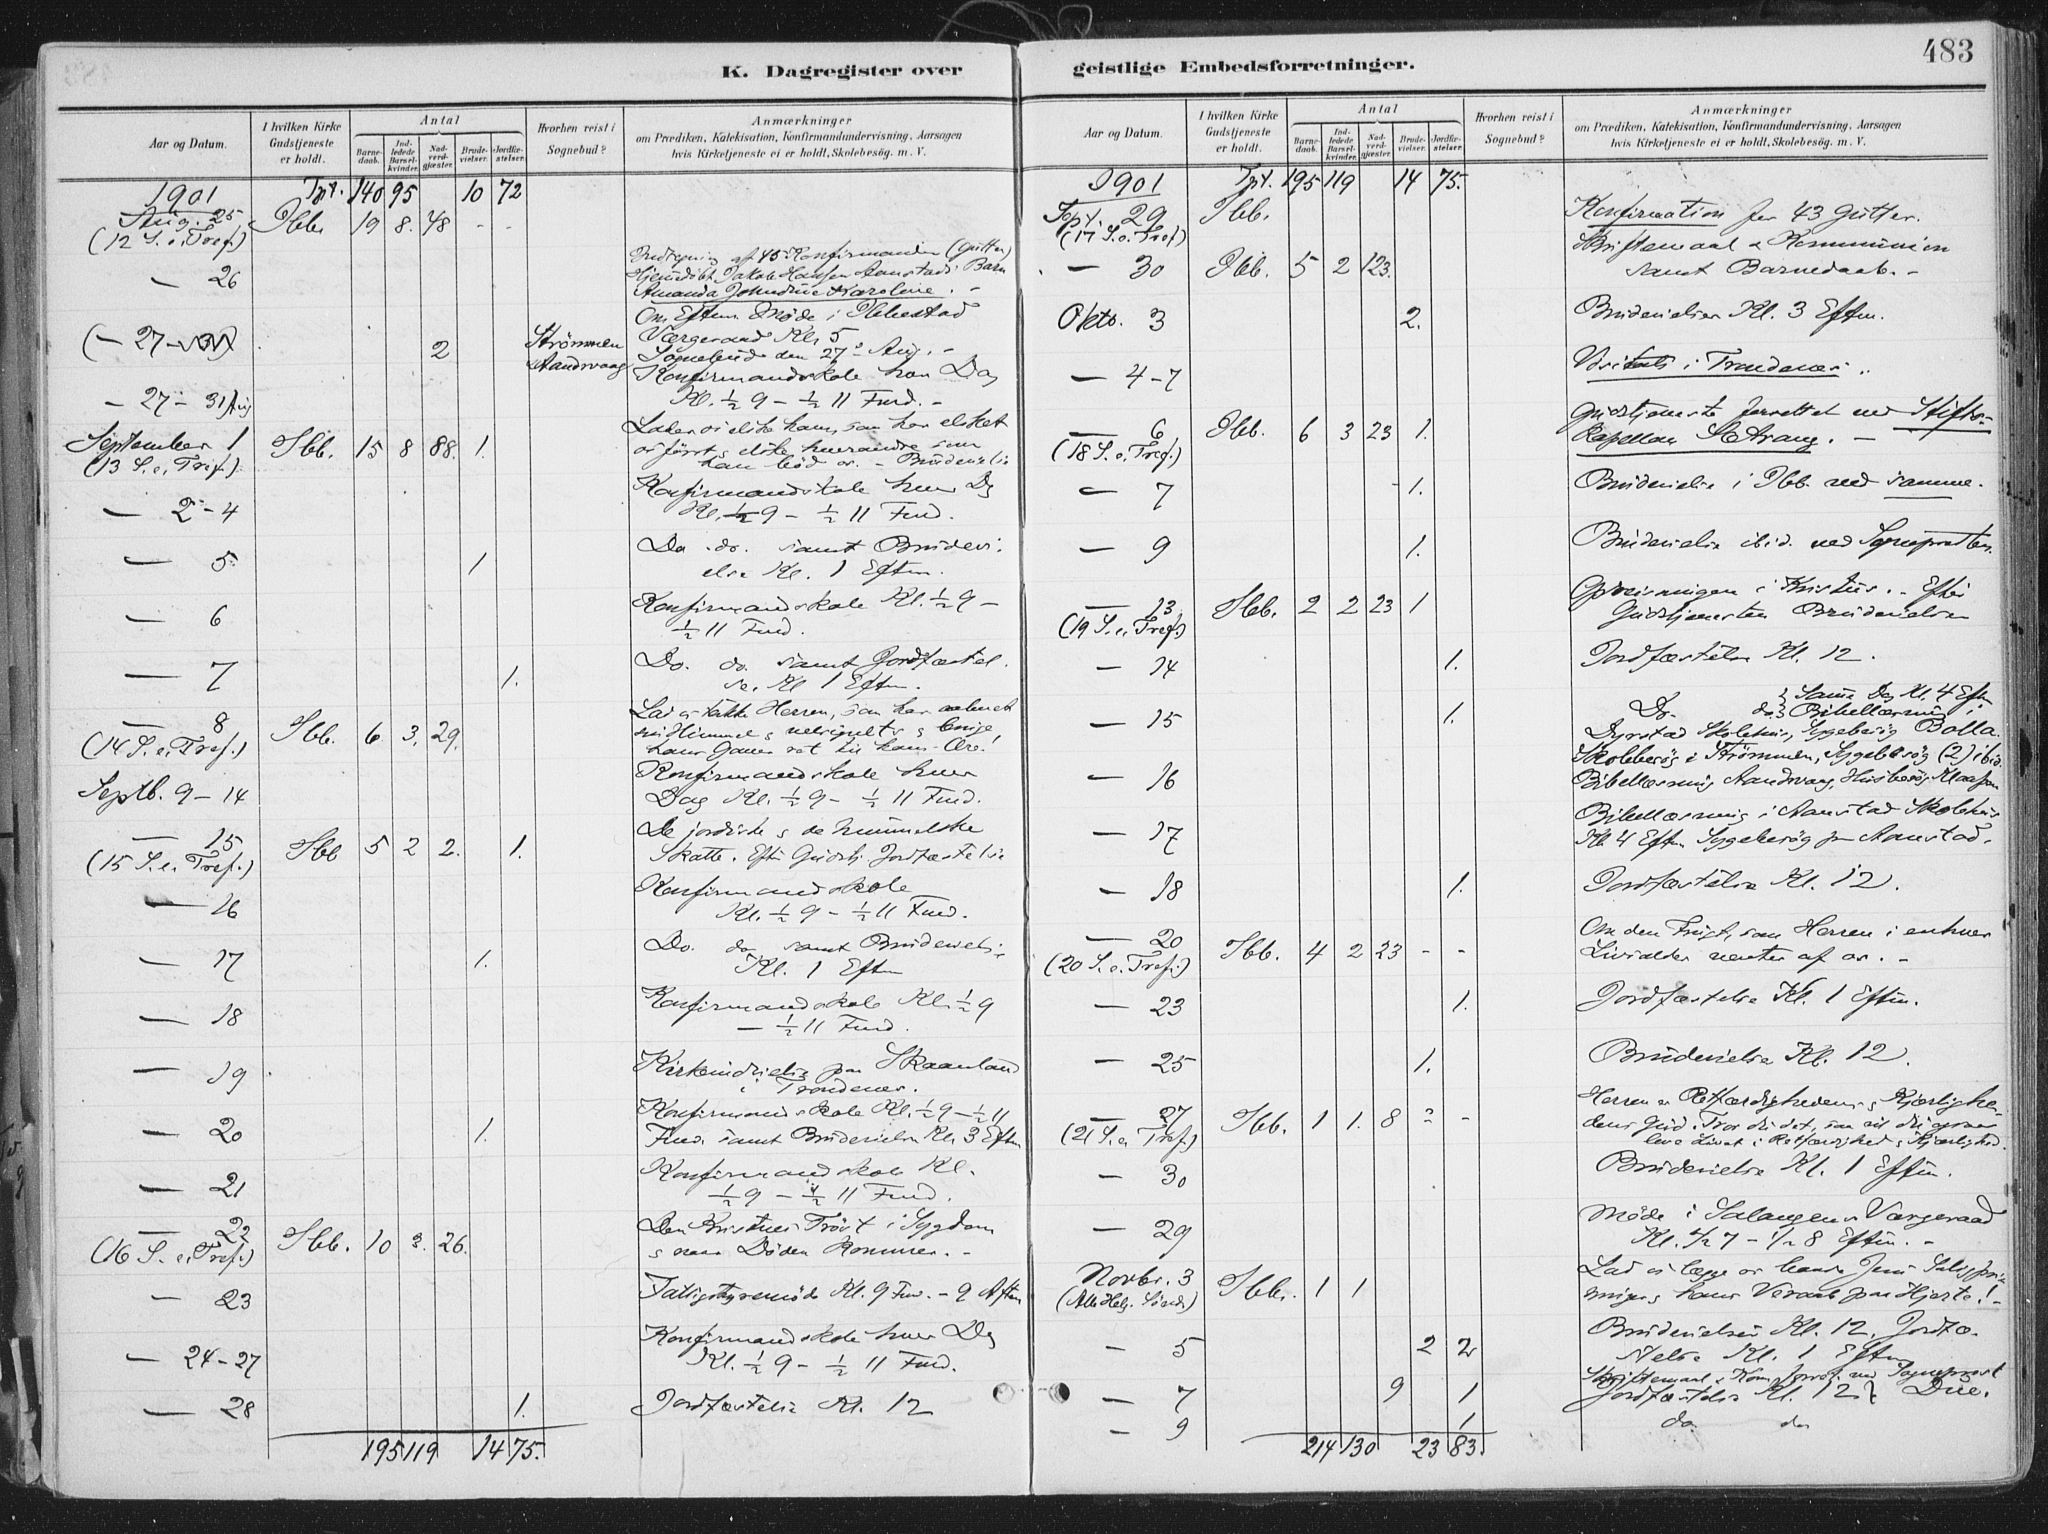 483
K. Dagregister over
geistlige Embedsforretninger.
Aar og Datum.
I hvilken Kirke Gudstjeneste er holdt.
Antal
Barnedaab.
Indledede Barselkvinder.
Nadverdgjæster.
Brudevielser.
Jordfæstelser.
Hvorhen reist i Sognebud?
Anmærkninger
om Prædiken, Katekisation, Konfirmandundervisning, Aarsagen
hvis Kirketjeneste ei er holdt, Skolebesög. m. V.
1901 Tpt. 140 95 10 72
Aug. 25 Ibb. 19 8. 48 - -
(12 S. e. Tref.)
— 26 af 45 Konfirmander (Gutter)
Hjemdøbt Jakob Hansen Aanstads Barn
Amanda Karoline. -
Om Eftm. Møde i Ibbestad
(— 27 2 Strømmen Værgeraad Kl. 5
Aandsvaag Sognebud den 27de Aug. -
— 27 - 31 Aug Konfirmandskole hver Dag
Kl. ½ 9 - ½ 11 Fmd. -
September 1 Ibb. 15 8 88. 1. Lader os elske ham, som har elsket
(13 S. e. Tref.) os først, elske hverandre som
han bød os. - Brudevielse
— 2 - 4 Konfirmandskole hver Dg
Kl. ½ 9 - ½ 11 Fmd.
— 5 1 Do. do. samt Brudevi-
else Kl. 1 Eftm.
— 6 Konfirmandskole Kl. ½ 9 -
½ 11 Fmd.
— 7 1. Do. do. samt Jordfæstel-
se Kl 1 Eftm.
— 8 Ibb. 6 3. 29. Lad os takke Herren, som har aabnet
(14 S. e. Tref.) sin Himmel & velsignet &
hans Gaver ret til hans Ære!
Septb. 9 - 14 Konfirmandskole hver
Dag Kl. ½ 9 - ½ 11 Fmd.
— 15 Ibb 5 2 2. 1. De jordiske & de himmelske
(15 S. e. Tref.) Skatte. Efter Gudstj. Jordfæstelse
— 16 Konfirmandskole
Kl. ½ 9 - ½ 11 Fmd.
— 17 1. Do. do samt Brudevielse
Kl. 1 Eftm
— 18 Konfirmandskole Kl. ½ 9
- ½ 11 Fmd.
— 19 Kirkeindvielse paa Skaanland
i Trondenes.
— 20 1. Konfirmandskole Kl. ½ 9 - ½ 11
Fmd. samt Brudevielse Kl. 3 Eftm
— 21 Konfirmandskole Kl.
½ 9 - ½ 11 Fmd.
— 22 Ibb. 10 3. 26. Den Kristnes Trøst i Sygdom
(16 S. e. Tref.) & naar Døden kommer. -
— 23 Fattigstyremøde Kl. 9 Fmd. - 9 Aften
— 24 - 27 Konfirmandskole hver Dg
Kl. ½ 9 - ½ 11 Fmd.
— 28 1. Jordfæstelse Kl. 12
195 119 14 75.
Aar og Datum.
I hvilken Kirke Gudstjeneste er holdt.
Antal
Barnedaab.
Indledede Barselkvinder.
Nadverdgjæster.
Brudevielser.
Jordfæstelser.
Hvorhen reist i Sognebud?
Anmærkninger
om Prædiken, Katekisation, Konfirmandundervisning, Aarsagen
hvis Kirketjeneste ei er holdt, Skolebesög. m. V.
1901 Tpt. 195 119 14 75.
Sept. 29 Ibb. Konfirmation for 43 Gutter.
(17 S. e. Tref)
— 30 Ibb. 5 2 123. Skriftemaal & Kommunion
samt Barnedaab. -
Oktb. 3 2. Brudevielser Kl. 3 Eftm.
— 4 - 7 Visitats i Trondenes.
— 6 Ibb. 6 3 23 1. Gudstjeneste forrettet ved Stifts-
(18 S. e. Tref.) kapellan -
— 7 1. Brudevielse i Ibb. ved samme.
— 9 1. Brudevielse ibid. ved Sognepresten.
— 13 Ibb. 2 2 23 1 Opreisningen i Kristus. - Efter
(19 S. e. Tref.) Gudstjenesten Brudevielse
— 14 1. Jordfæstelse Kl. 12.
— 15 1. Do. do. } Samme Dag Kl. 4 Eftm.
Bibellæsning i
Dyrstad Skolehus, Sygebesög Bolla.
— 16 Skolebesög i Strømmen, Sygebesög (2) ibid.
Bibellæsning Aandsvaag, Husbesög
— 17 Bibellæsning i Aanstad Skolehus
Kl. 4 Eftm Sygebesög paa Aanstad.
— 18 1. Jordfæstelse Kl. 12.
— 20 Ibb. 4 2 23 - - Om den Frugt, som Herren i enhver
(20 S. e. Tref.) Livsalder venter af os. -
— 23 1. Jordfæstelse Kl. 1 Eftm.
— 25 1. Brudevielse Kl. 12.
— 27 Ibb. 1 1. 8 - - Herren er Retfærdighedens & Kjærlighe-
(21 S. e. Tref.) dens Gud. Tror du det, saa vil du ogsaa
leve Livet i Retfærdighed & Kjærlighed.
— 30 Brudevielse Kl. 1 Eftm.
— 29 Møde i Salangens Værgeraad
Kl. ½ 7 - ½ 8 Eftm. -
Novbr. 3 Ibb. 1 1 Lad os lægge os baade Jesu Saligpris-
(Alle Helg. Sønd.) ninger & hans Veraab paa Hjerte! -
— 5 2 2 Brudevielser Kl. 12. Jordfæ-
stelse Kl. 1 Eftm
— 7 9 1 Skriftemaal & Kom. ved Sogneprest
Jordfæstelse Kl. 12 } Due.
— 9 1 do do
214 130 23 83.